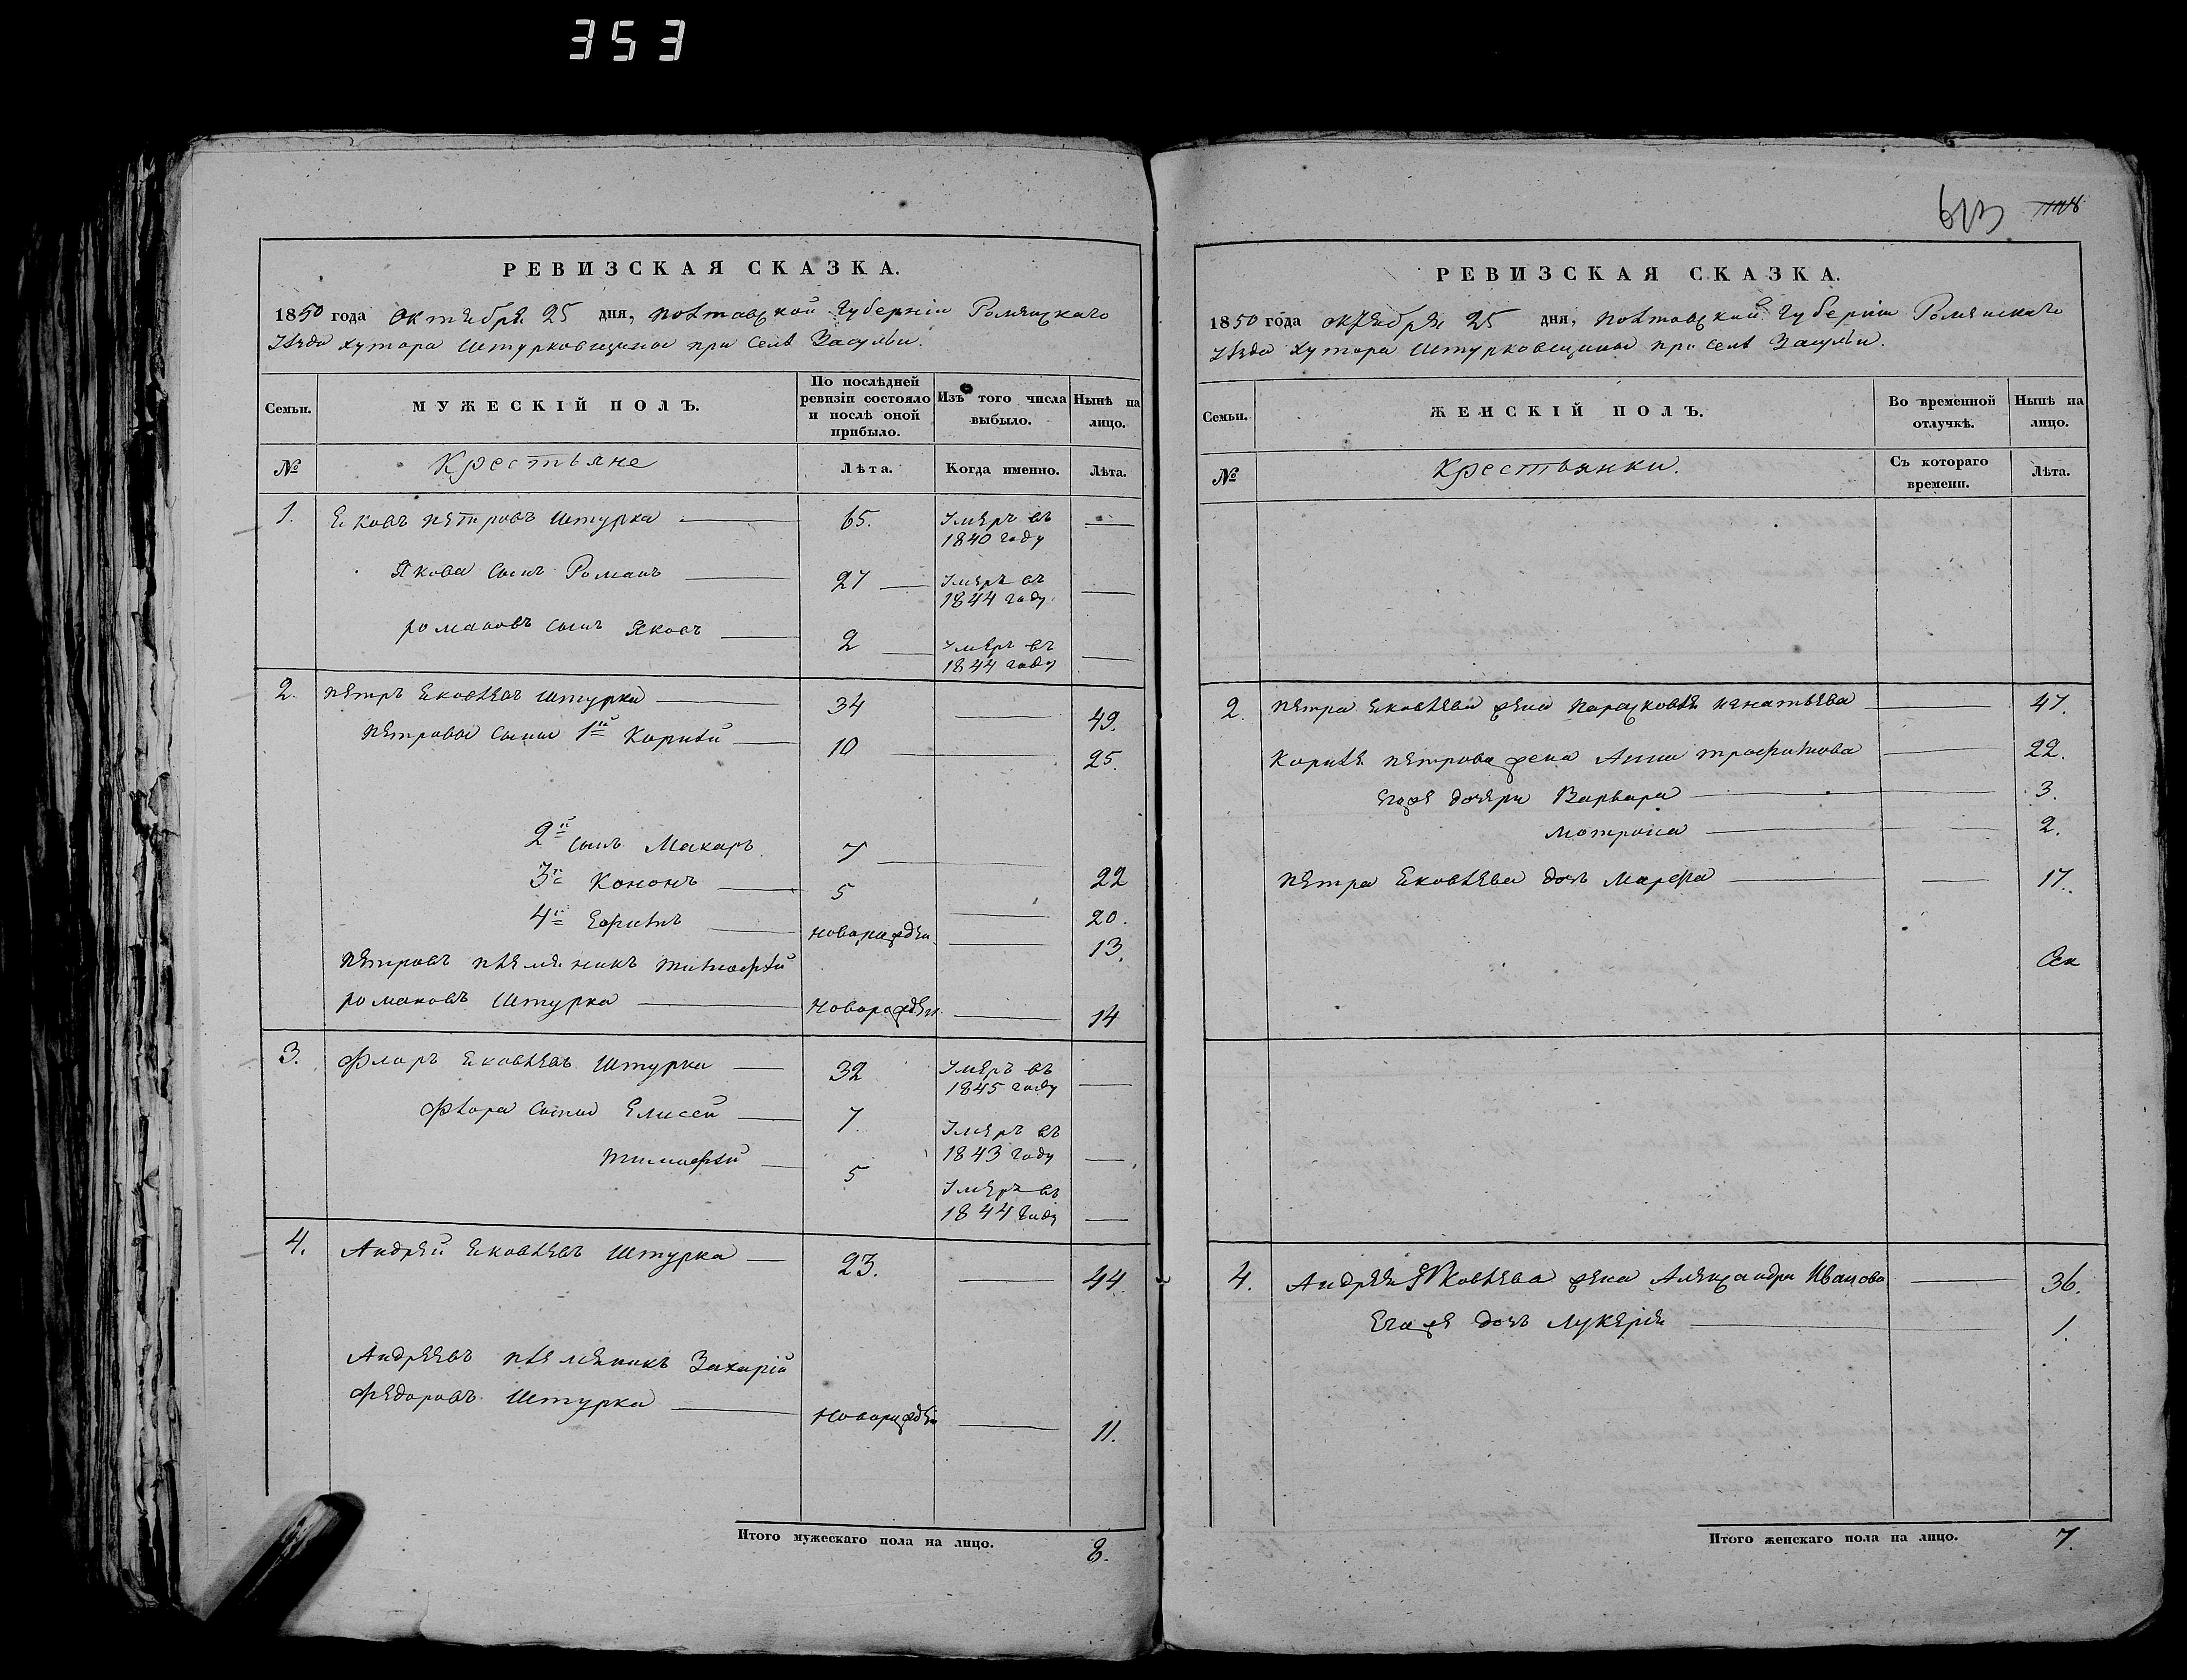 353
613 1128
РЕВИЗСКАЯ СКАЗКА.
1850 года октября 25 дня, Полтавской Губерніи Роменскаго
Уезда хутора Штурковщины при селе Засульи.
Семьи. МУЖЕСКІЙ ПОЛЪ. По послѣдней ревизіи состояло и послѣ оной прибыло. Изъ того числа выбыло. Нынѣ на лицо.
№ Крестьяне Лѣта. Когда именно. Лѣта.
1. Яковъ Петровъ Штурка 65. Умеръ въ 1840 году
Якова сынъ Романъ 27 Умеръ въ 1844 году
Романовъ сынъ Яковъ 2 Умеръ въ 1844 году
2. Петръ Яковлевъ Штурка 34 49.
Петровы сыны 1й Корнѣй 10 25.
2й сынъ Макаръ 7 22
3й Кононъ 5 20.
4й Ефимъ новорожден 13.
Петровъ племяникъ Тимофѣй
Романовъ Штурка Новорожден. 14
3. Флоръ Яковлевъ Штурка 32 Умеръ въ 1845 году
Флора сыны Елисей 7. Умеръ въ 1843 году
Тимофѣй 5 Умеръ въ 1844 году
4. Андрей Яковлевъ Штурка 23. 44
Андреевъ племяникъ Захарій
Федоровъ Штурка Новорожден 11.
Итого мужескаго пола на лицо. 8.
РЕВИЗСКАЯ СКАЗКА.
1850 года октября 25 дня, Полтавской Губерніи Роменскаго
Уезда хутора Штурковщины при селе Засульи.
Семьи. ЖЕНСКІЙ ПОЛЪ. Во временной отлучкѣ. Нынѣ на лицо.
№ Крестьянки. Съ котораго времени. Лѣта.
2. Петра Яковлева жена Парасковья Игнатьева 47.
Корнея Петрова жена Анна Трофимова 22.
Егоже дочери Варвара 3.
Мотрона 2.
Петра Яковлева дочь Марфа 17.
4. Андрея Яковлева жена Александра Иванова 36.
Егоже дочь Лукерья 1.
Итого женскаго пола на лицо. 7.